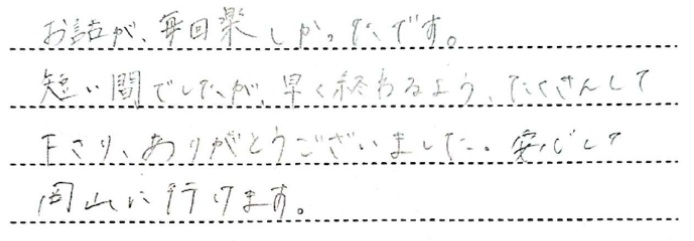 お話が、毎回楽しかったです。
短い間でしたが、早く終わるよう、たくさんして
下さり、ありがとうございました。安心して
岡山に行けます。